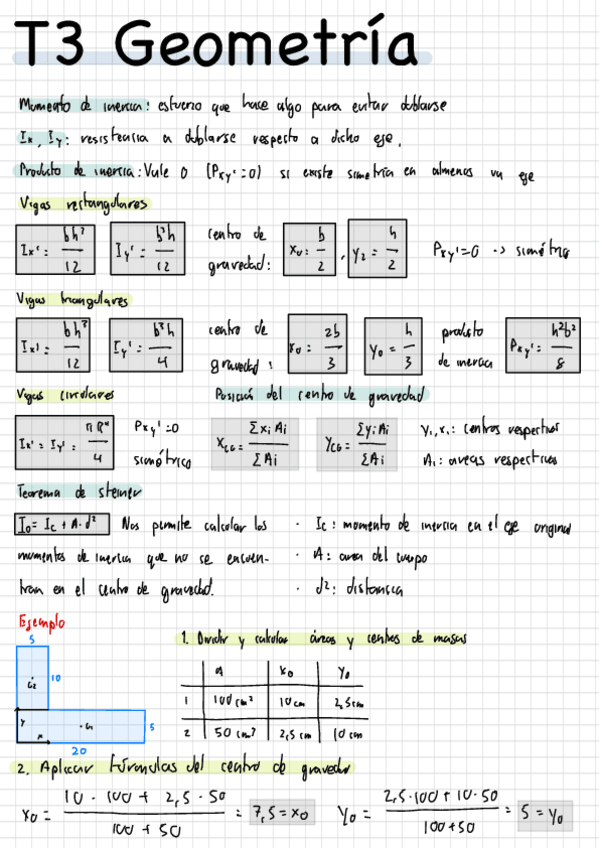 T3 Geometría
Momento de inercia: esfuerzo que hace algo para evitar doblarse
Ix, Iy: resistencia a doblarse respecto a dicho eje.
Producto de inercia: Vale 0 (Pxy'=0) si existe simetría en almenos un eje
Vigas rectangulares
Ix' = bh³/12 Iy' = b³h/12 centro de gravedad: x0 = b/2, y2 = h/2 Pxy'=0 -> simétrico
Vigas triangulares
Ix' = bh³/12 Iy' = b³h/4 centro de gravedad: x0 = 2b/3 y0 = h/3 producto de inercia Pxy' = h²b²/8
Vigas circulares Posición del centro de gravedad
Ix' = Iy' = πR⁴/4 Pxy'=0 simétrico XCG = Σxi Ai/ΣAi YCG = Σyi Ai/ΣAi yi, xi: centros respectivos
Ai: areas respectivas
Teorema de steiner
I0 = Ic + A·d² Nos permite calcular los · Ic: momento de inercia en el eje original
momentos de inercia que no se encuen- · A: area del cuerpo
tran en el centro de gravedad. · d²: distancia
Ejemplo
1. Dividir y calcular áreas y centros de masas
5
G2 10
y
x G1 5
20
A x0 y0
1 100cm² 10cm 2,5cm
2 50cm² 2,5cm 10cm
2. Aplicar fórmulas del centro de gravedad
x0 = 10 · 100 + 2,5 · 50/100 + 50 = 7,5 = x0 y0 = 2,5·100 + 10·50/100+50 = 5 = y0